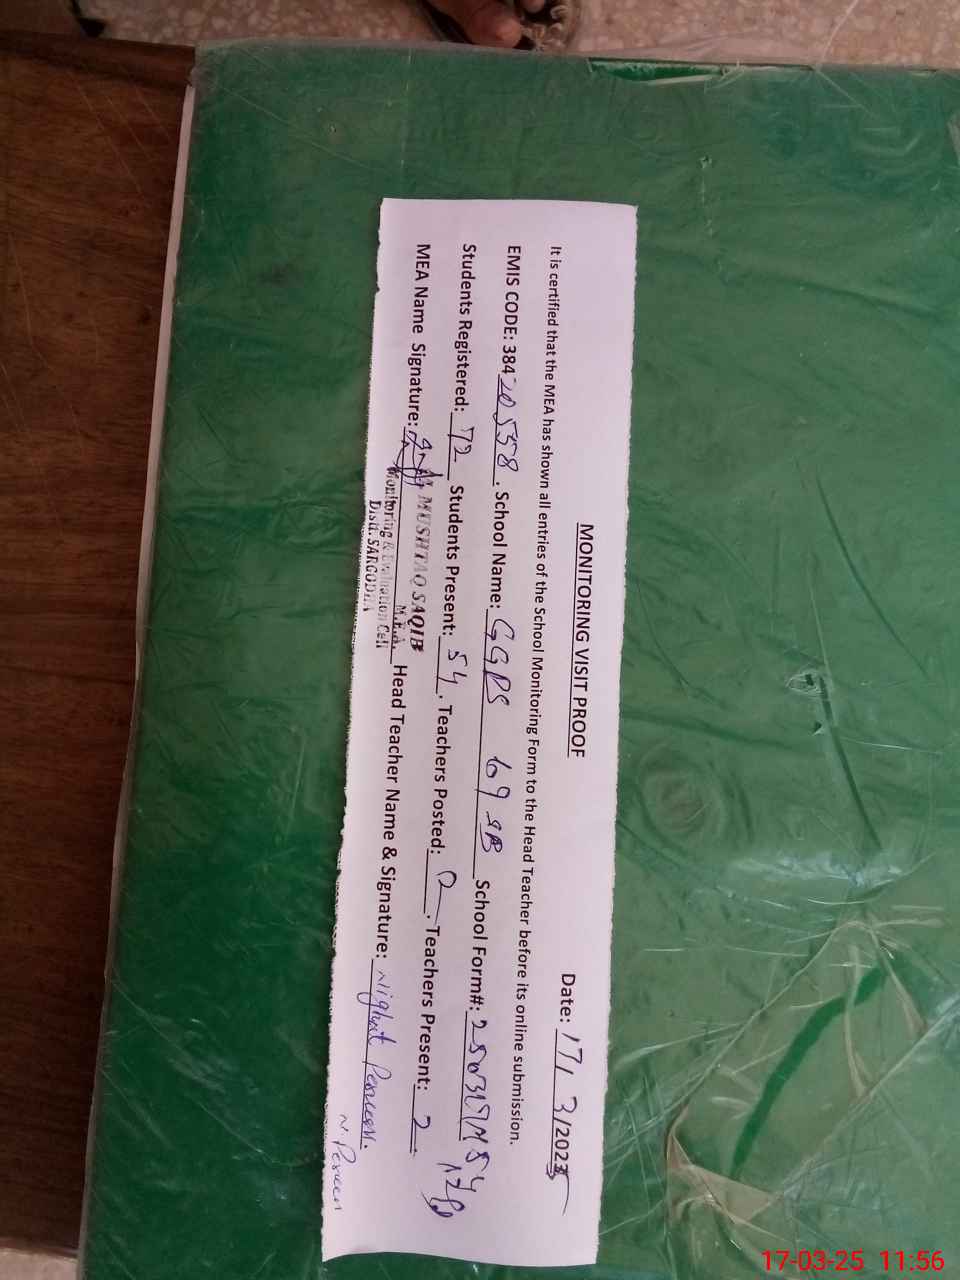 MONITORING VISIT PROOF
Date: 17/3/2025
It is certified that the MEA has shown all entries of the School Monitoring Form to the Head Teacher before its online submission.
EMIS CODE: 38420558. School Name: GGPS 109 SB School Form#:
Students Registered: 72 Students Present: 54. Teachers Posted: 2. Teachers Present: 2.
MEA Name Signature: MUSHTAQ SAQIB Head Teacher Name & Signature: Nighat Perveen.
M.E.A.
Monitoring & Evaluation Cell
Distt. SARGODHA
N. Perveen
17-03-25 11:56